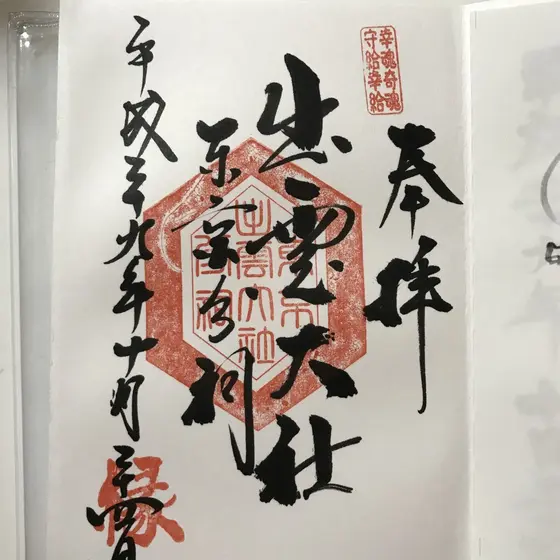 幸魂奇魂
守給幸給
奉拝
出雲大社
東京分祠
出雲大社
平成二十九年十月二十四日
縁